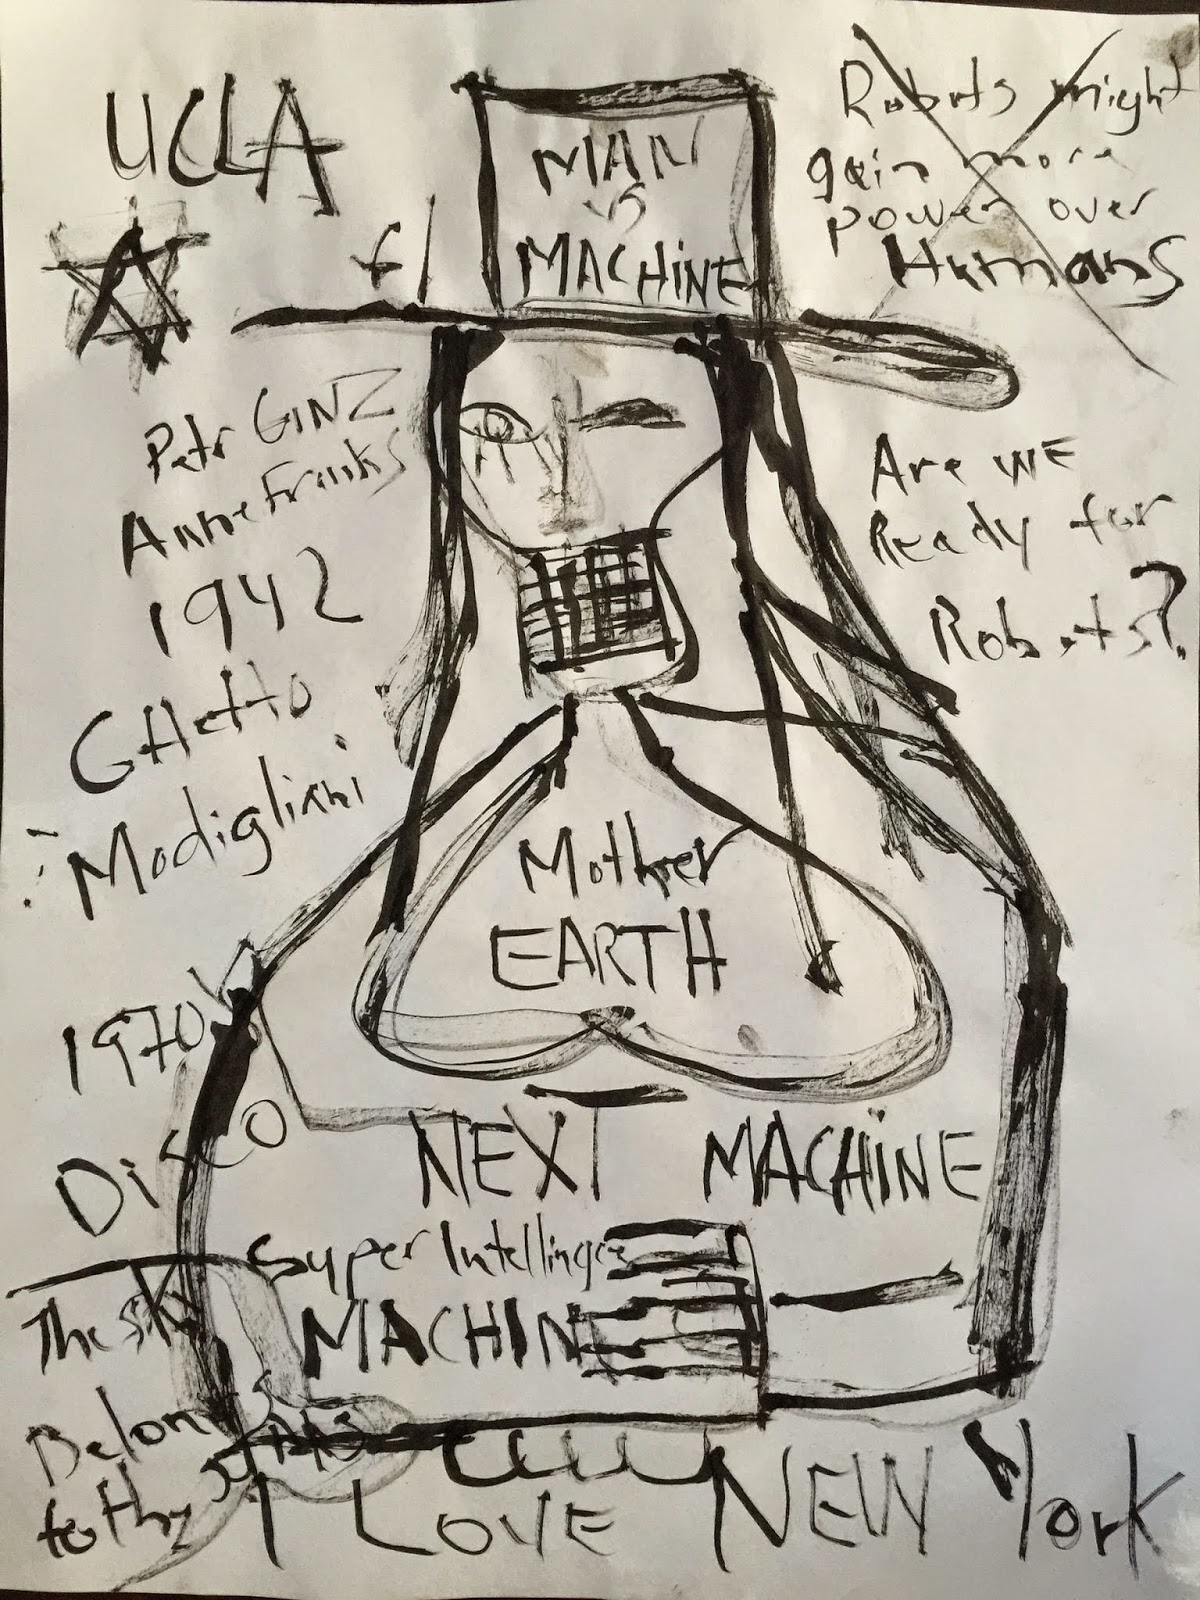 UCLA
MAN
VS
MACHINE
Robots might
gain more
power over
Humans
Petr GINZ
Anne Franks
1942
GHetto
Modigliani
Are WE
Ready for
Robots?
Mother
EARTH
1970's
Disco
NEXT MACHINE
Super Intellingce
MACHINE
The sky
Belongs
to the
I LOVE NEW York